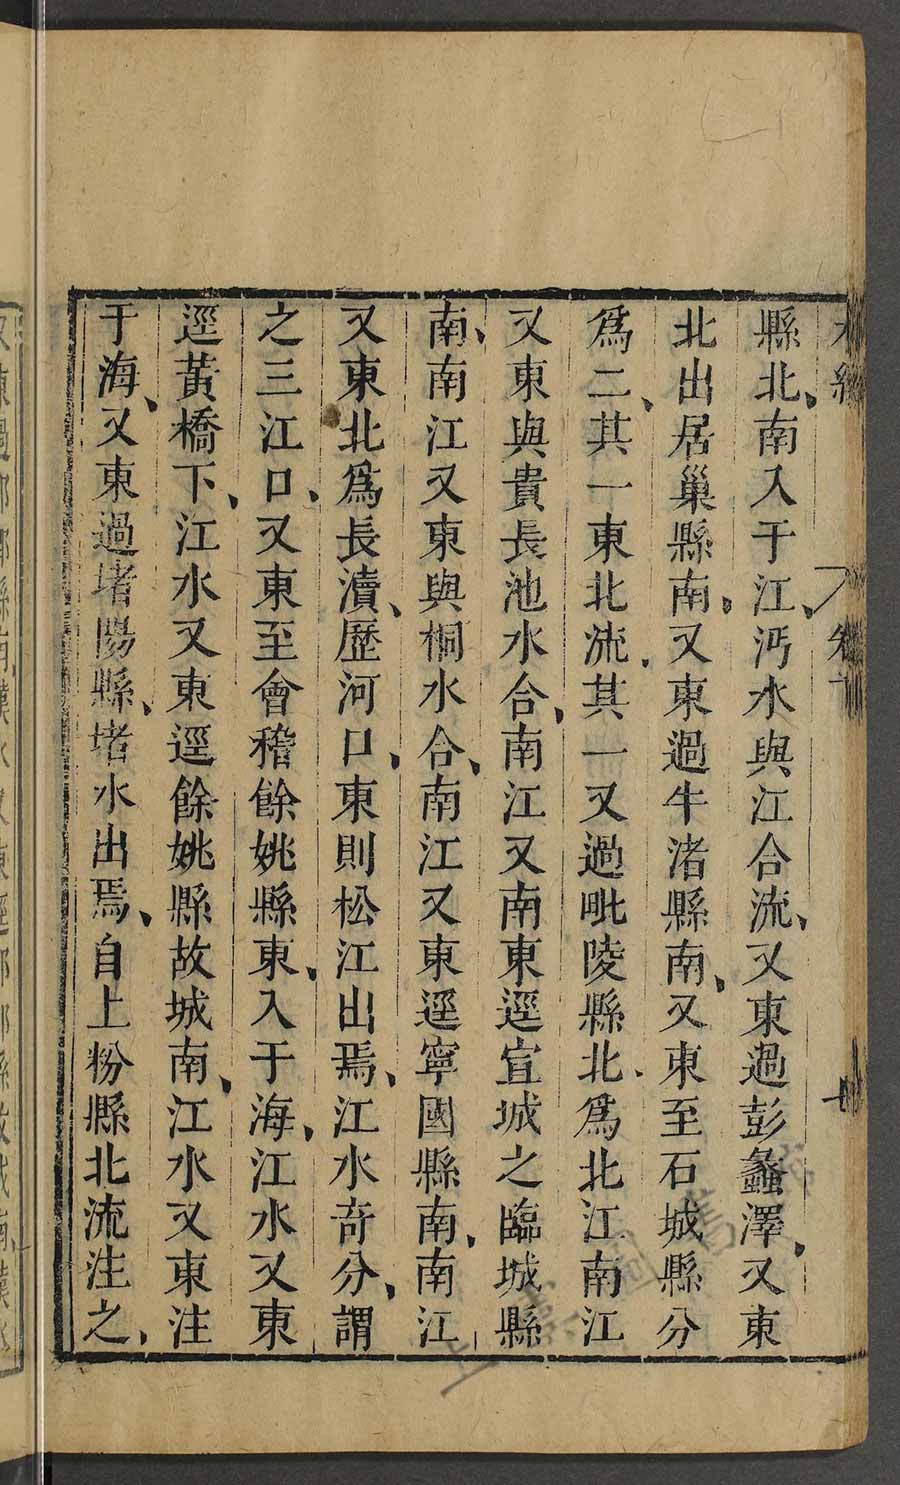 水經
卷下
七
縣北、南入于江、沔水與江合流、又東過彭蠡澤、又東
北出居巢縣南、又東過牛渚縣南、又東至石城縣分
爲二、其一東北流、其一又過毗陵縣北、爲北江南江
又東與貴長池水合、南江又南東逕宣城之臨城縣
南、南江又東與桐水合、南江又東逕寧國縣南、南江
又東北爲長瀆、歷河口、東則松江出焉、江水奇分、謂
之三江口、又東至會稽餘姚縣東、入于海、江水又東
逕黃橋下、江水又東逕餘姚縣故城南、江水又東注
于海、又東過堵陽縣、堵水出焉、自上粉縣北流注之、